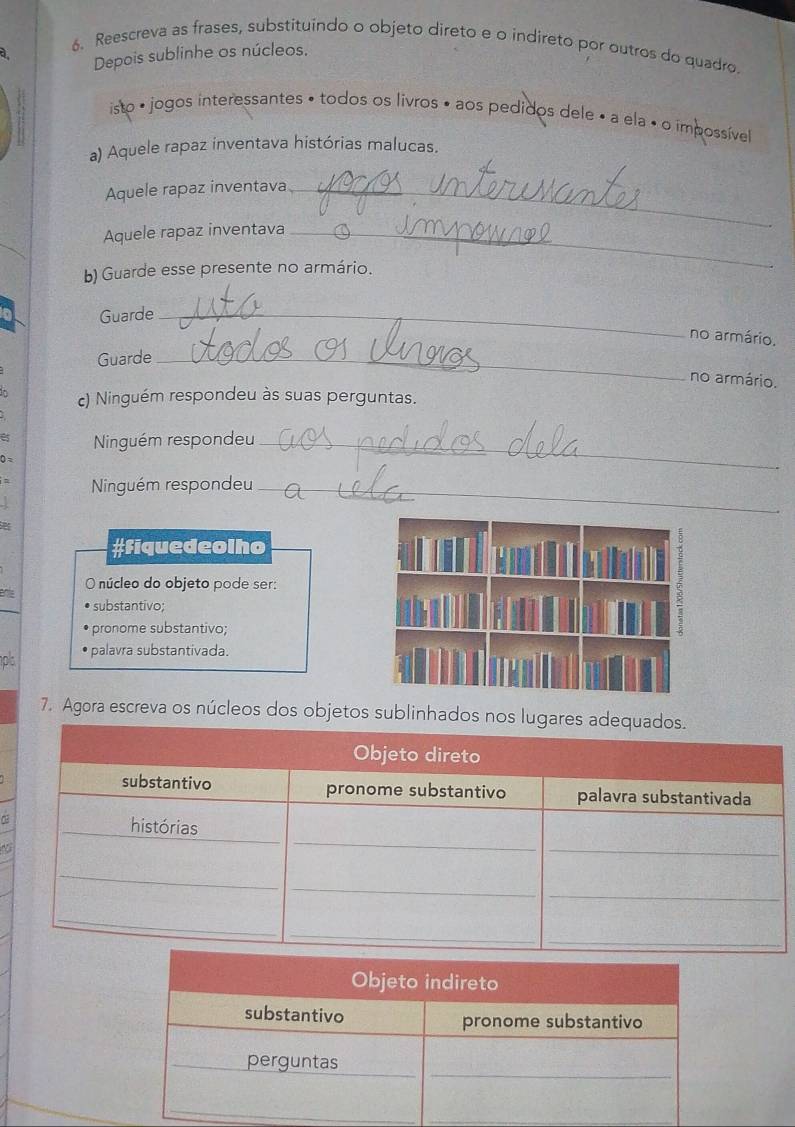 6. Reescreva as frases, substituindo o objeto direto e o indireto por outros do quadro.
Depois sublinhe os núcleos.
isto • jogos interessantes • todos os livros • aos pedidos dele • a ela • o impossível
a) Aquele rapaz inventava histórias malucas.
Aquele rapaz inventava jogos interessantes
Aquele rapaz inventava o
b) Guarde esse presente no armário.
Guarde isto no armário.
Guarde todos os no armário.
c) Ninguém respondeu às suas perguntas.
Ninguém respondeu aos pedidos dela
Ninguém respondeu a ela
#fiquedeolho
O núcleo do objeto pode ser:
• substantivo;
• pronome substantivo;
• palavra substantivada.
donatas1205/Shutterstock.com
7. Agora escreva os núcleos dos objetos sublinhados nos lugares adequados.
Objeto direto
substantivo pronome substantivo palavra substantivada
histórias
Objeto indireto
substantivo pronome substantivo
perguntas